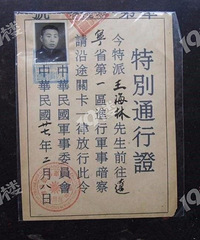 特別通行證
今特派王海林先生前往遼
寧省第一區進行軍事暗察
請沿途關卡一律放行此令
中華民國軍事委員會
中華民國廿七年二月八日